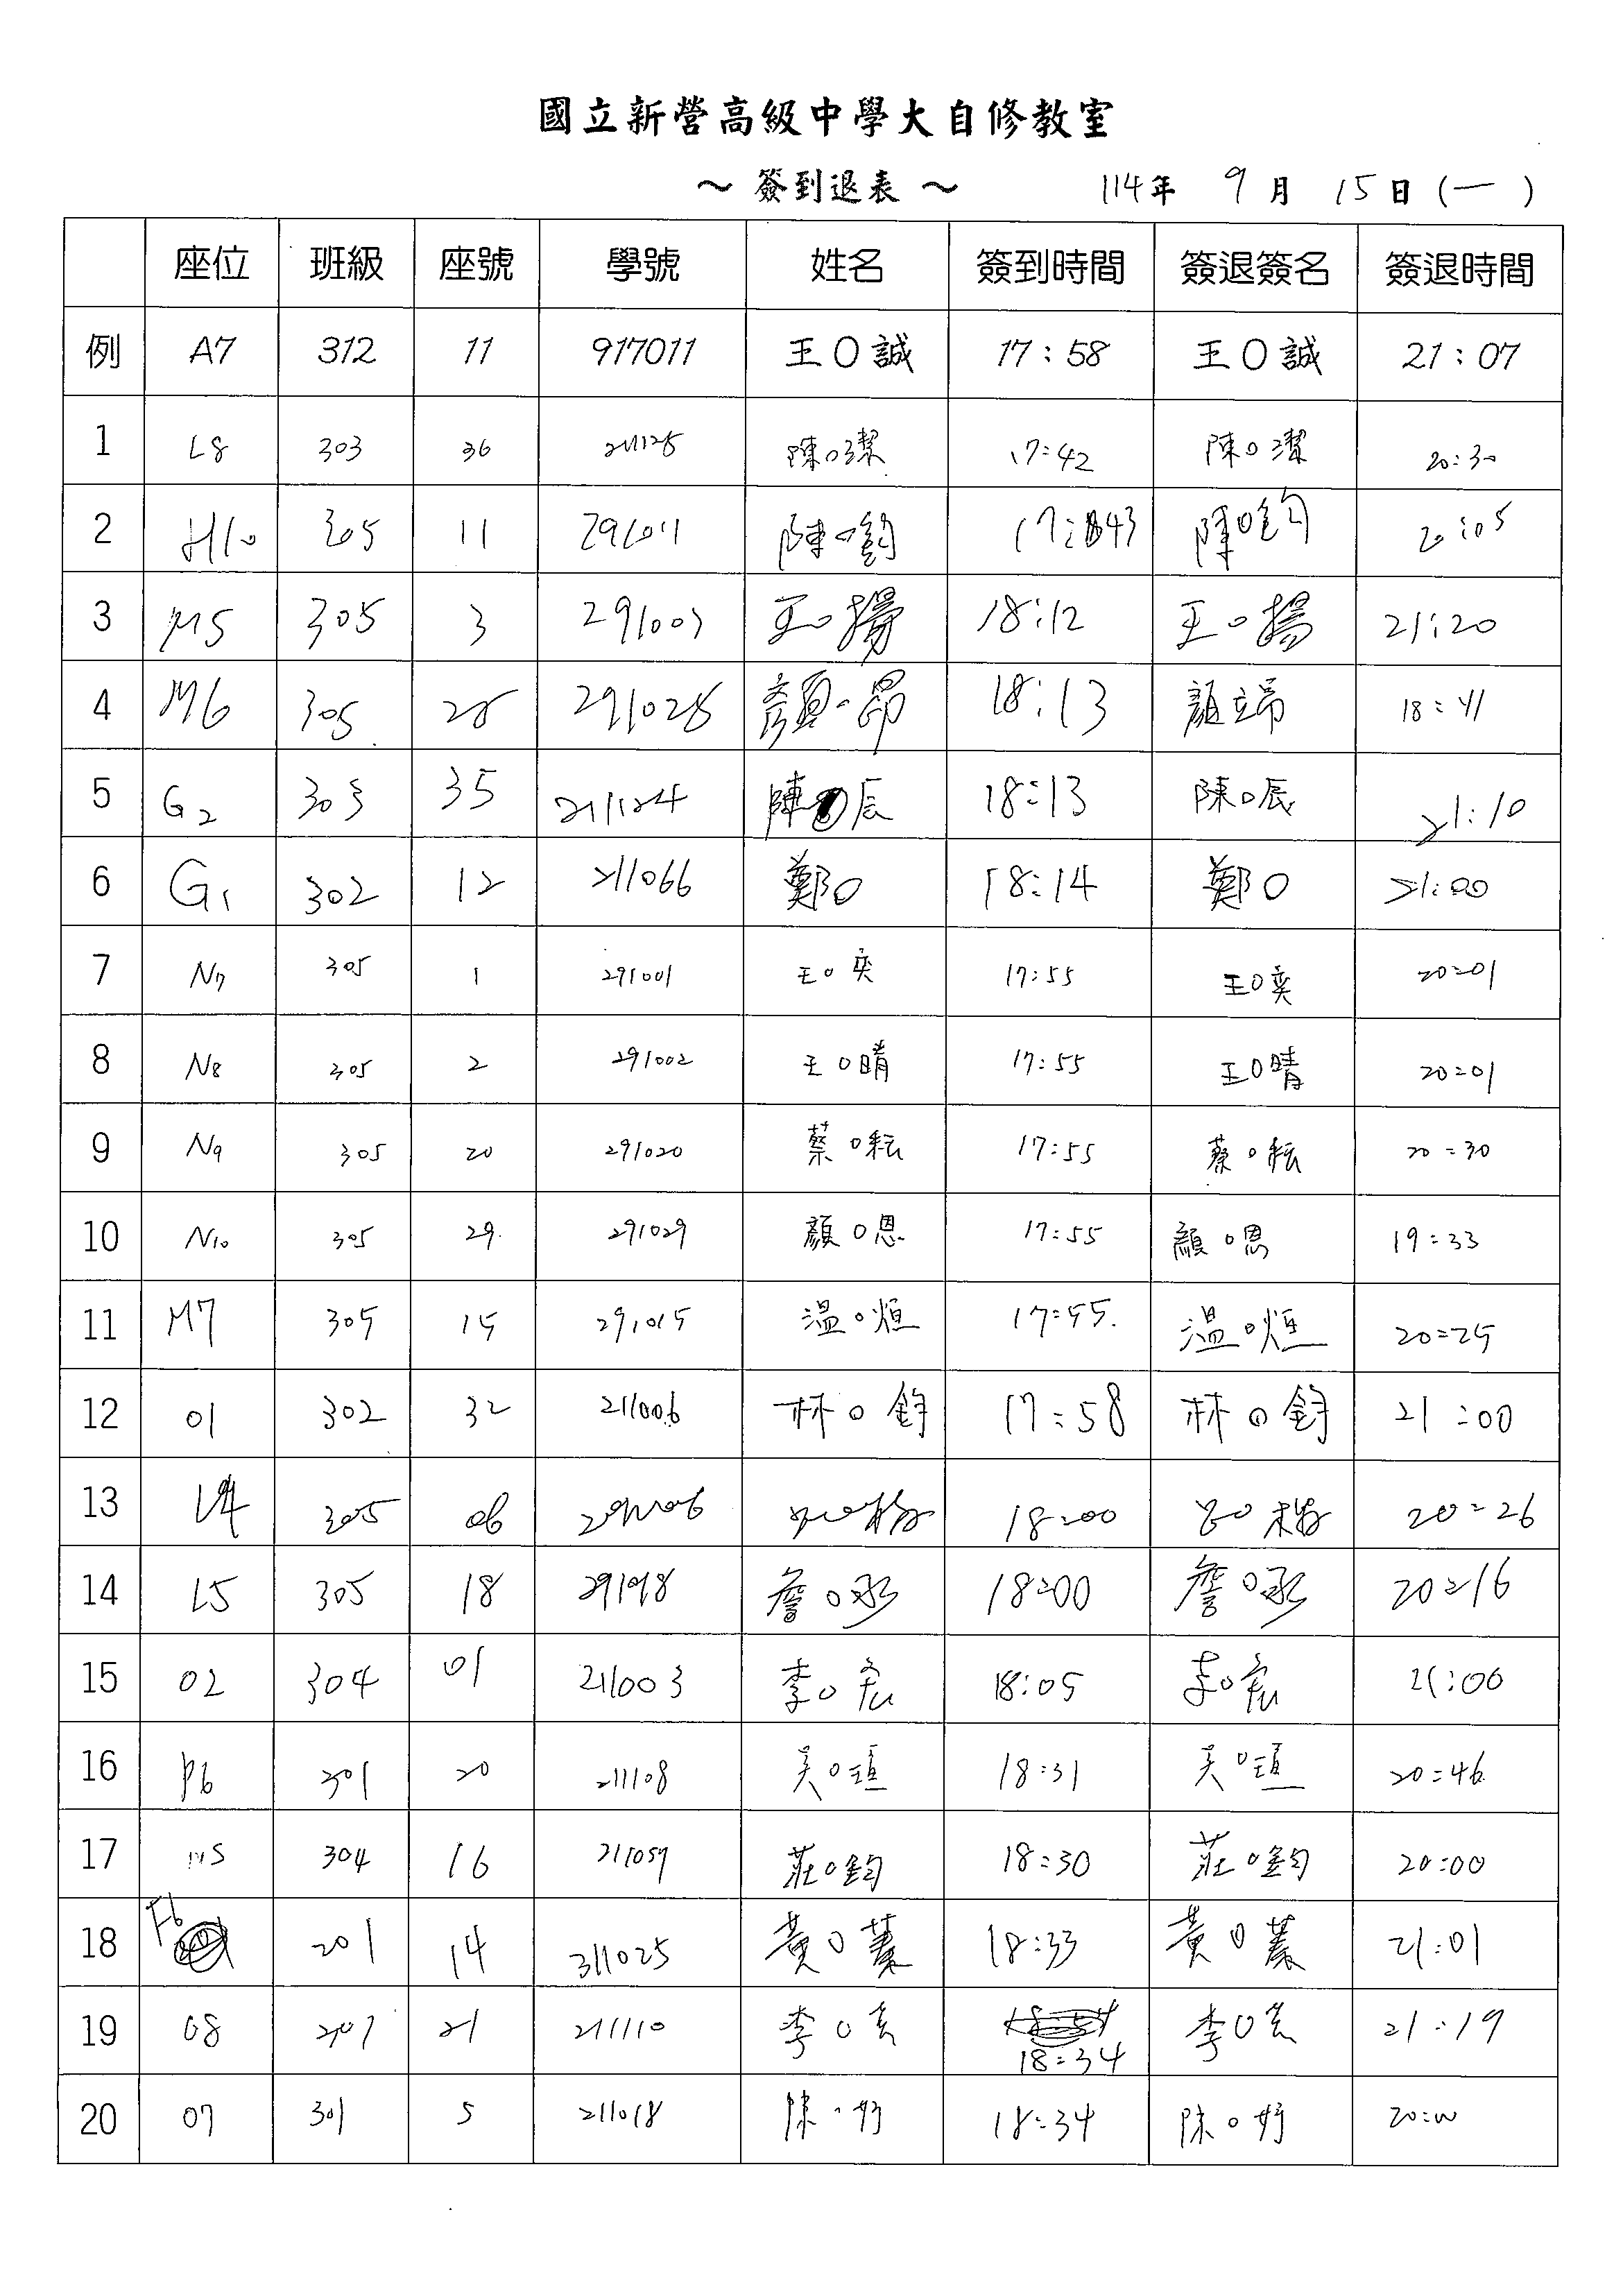 國立新營高級中學大自修教室
～ 簽到退表 ～ 114年 9月 15日(一)
座位 班級 座號 學號 姓名 簽到時間 簽退簽名 簽退時間
例 A7 312 11 917011 王〇誠 17:58 王〇誠 21:07
1 L8 303 36 211125 陳〇潔 17:42 陳〇潔 20:30
2 H10 305 11 291011 陳〇鈞 陳〇鈞 20:05
3 M5 305 3 291003 王〇揚 18:12 王〇揚 21:20
4 M6 305 28 291028 顏〇昂 18:13 18:41
5 G2 303 35 211124 陳〇辰 18:13 陳〇辰 21:10
6 G1 302 12 211066 鄭〇 18:14 鄭〇 21:00
7 N7 305 1 291001 王〇奕 17:55 王〇奕 20:01
8 N8 305 2 291002 王〇晴 17:55 王〇晴 20:01
9 N9 305 20 291020 蔡〇耘 17:55 蔡〇耘 20:30
10 N10 305 29 291029 顏〇恩 17:55 顏〇恩 19:33
11 M7 305 15 291015 溫〇烜 17:55 溫〇烜 20:25
12 O1 302 32 211006 林〇錞 17:58 林〇錞 21:00
13 L4 305 06 18:00 20:26
14 L5 305 18 詹〇丞 18:00 詹〇丞 20:16
15 O2 304 01 211003 李〇宏 18:05 李〇宏 21:00
16 P6 301 20 211108 吳〇瑄 18:31 吳〇瑄 20:46
17 304 16 211059 莊〇鈞 18:30 莊〇鈞 20:00
18 F6 201 14 311025 黃〇蓁 18:33 黃〇蓁 21:01
19 O8 21 211110 李〇 18:34 李〇 21:19
20 O7 301 5 211018 陳〇妤 18:34 陳〇妤